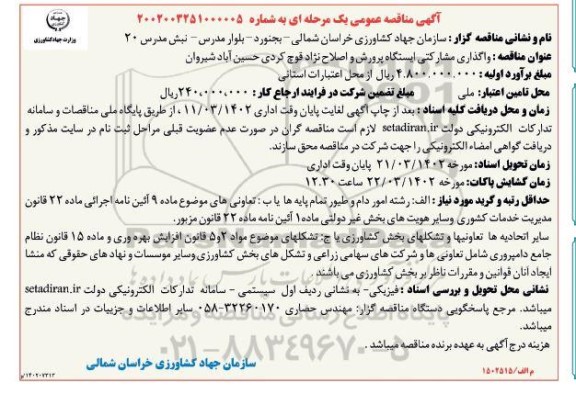 آگهی مناقصه عمومی یک مرحله ای به شماره ۲۰۰۲۰۰۳۲۵۱۰۰۰۰۰۵
جهاد
وزارت جهاد کشاورزی
نام و نشانی مناقصه گزار : سازمان جهاد کشاورزی خراسان شمالی – بجنورد – بلوار مدرس – نبش مدرس ۲۰
عنوان مناقصه : واگذاری مشارکتی ایستگاه پرورش و اصلاح نژاد قوچ کردی حسین آباد شیروان
مبلغ برآورد اولیه : ۴.۸۰۰.۰۰۰.۰۰۰ ریال از محل اعتبارات استانی
محل تامین اعتبار: ملی مبلغ تضمین شرکت در فرایند ارجاع کار : ۲۴۰.۰۰۰.۰۰۰ ریال
زمان و محل دریافت کلیه اسناد : بعد از چاپ آگهی لغایت پایان وقت اداری ۱۱/۰۳/۱۴۰۲ ، از طریق پایگاه ملی مناقصات و سامانه
تدارکات الکترونیکی دولت setadiran.ir لازم است مناقصه گران در صورت عدم عضویت قبلی مراحل ثبت نام در سایت مذکور و
دریافت گواهی امضاء الکترونیکی را جهت شرکت در مناقصه محق سازند.
زمان تحویل اسناد: مورخه ۲۱/۰۳/۱۴۰۲ پایان وقت اداری
زمان گشایش پاکات: مورخه ۲۲/۰۳/۱۴۰۲ ساعت ۱۲.۳۰
حداقل رتبه و گرید مورد نیاز : الف: رشته امور دام و طیور تمام پایه ها یا ب : تعاونی های موضوع ماده ۹ آئین نامه اجرائی ماده ۲۲ قانون
مدیریت خدمات کشوری وسایر هویت های بخش غیر دولتی ماده۱ آئین نامه ماده ۲۲ قانون مزبور.
سایر اتحادیه ها تعاونیها و تشکلهای بخش کشاورزی یا ج: تشکلهای موضوع مواد ۲و۵ قانون افزایش بهره وری و ماده ۱۵ قانون نظام
جامع دامپروری شامل تعاونی ها و شرکت های سهامی زراعی و تشکل های بخش کشاورزی وسایر موسسات و نهاد های حقوقی که منشا
ایجاد آنان قوانین و مقررات ناظر بر بخش کشاورزی می باشند.
نشانی محل تحویل و بررسی اسناد : فیزیکی- به نشانی ردیف اول سیستمی - سامانه تدارکات الکترونیکی دولت setadiran.ir
میباشد. مرجع پاسخگویی دستگاه مناقصه گزار: مهندس حصاری ۳۲۲۶۰۱۷۰-۰۵۸ سایر اطلاعات و جزییات در اسناد مندرج
میباشد.
هزینه درج آگهی به عهده برنده مناقصه میباشد .
سازمان جهاد کشاورزی خراسان شمالی
۰۲۱-۸۸۳۴۹۶۷۰-۵
م الف/۱۵۰۲۵۱۵